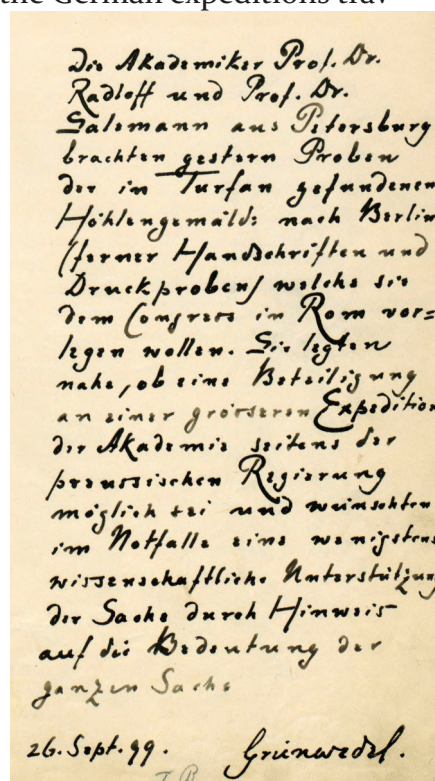 the German expeditions trav
Die Akademiker Prof. Dr.
Radloff und Prof. Dr.
Salemann aus Petersburg
brachten gestern Proben
der in Turfan gefundenen
Höhlengemälde nach Berlin
(ferner Handschriften und
Druckproben) welche sie
dem Congress in Rom vor=
legen wollen. Sie legten
nahe, ob eine Beteiligung
an einer grösseren Expedition
der Akademie seitens der
preussischen Regierung
möglich sei und wünschten
im Notfalle eine wenigstens
wissenschaftliche Unterstützung
der Sache durch Hinweis
auf die Bedeutung der
ganzen Sache
26. Sept. 99. Grünwedel.